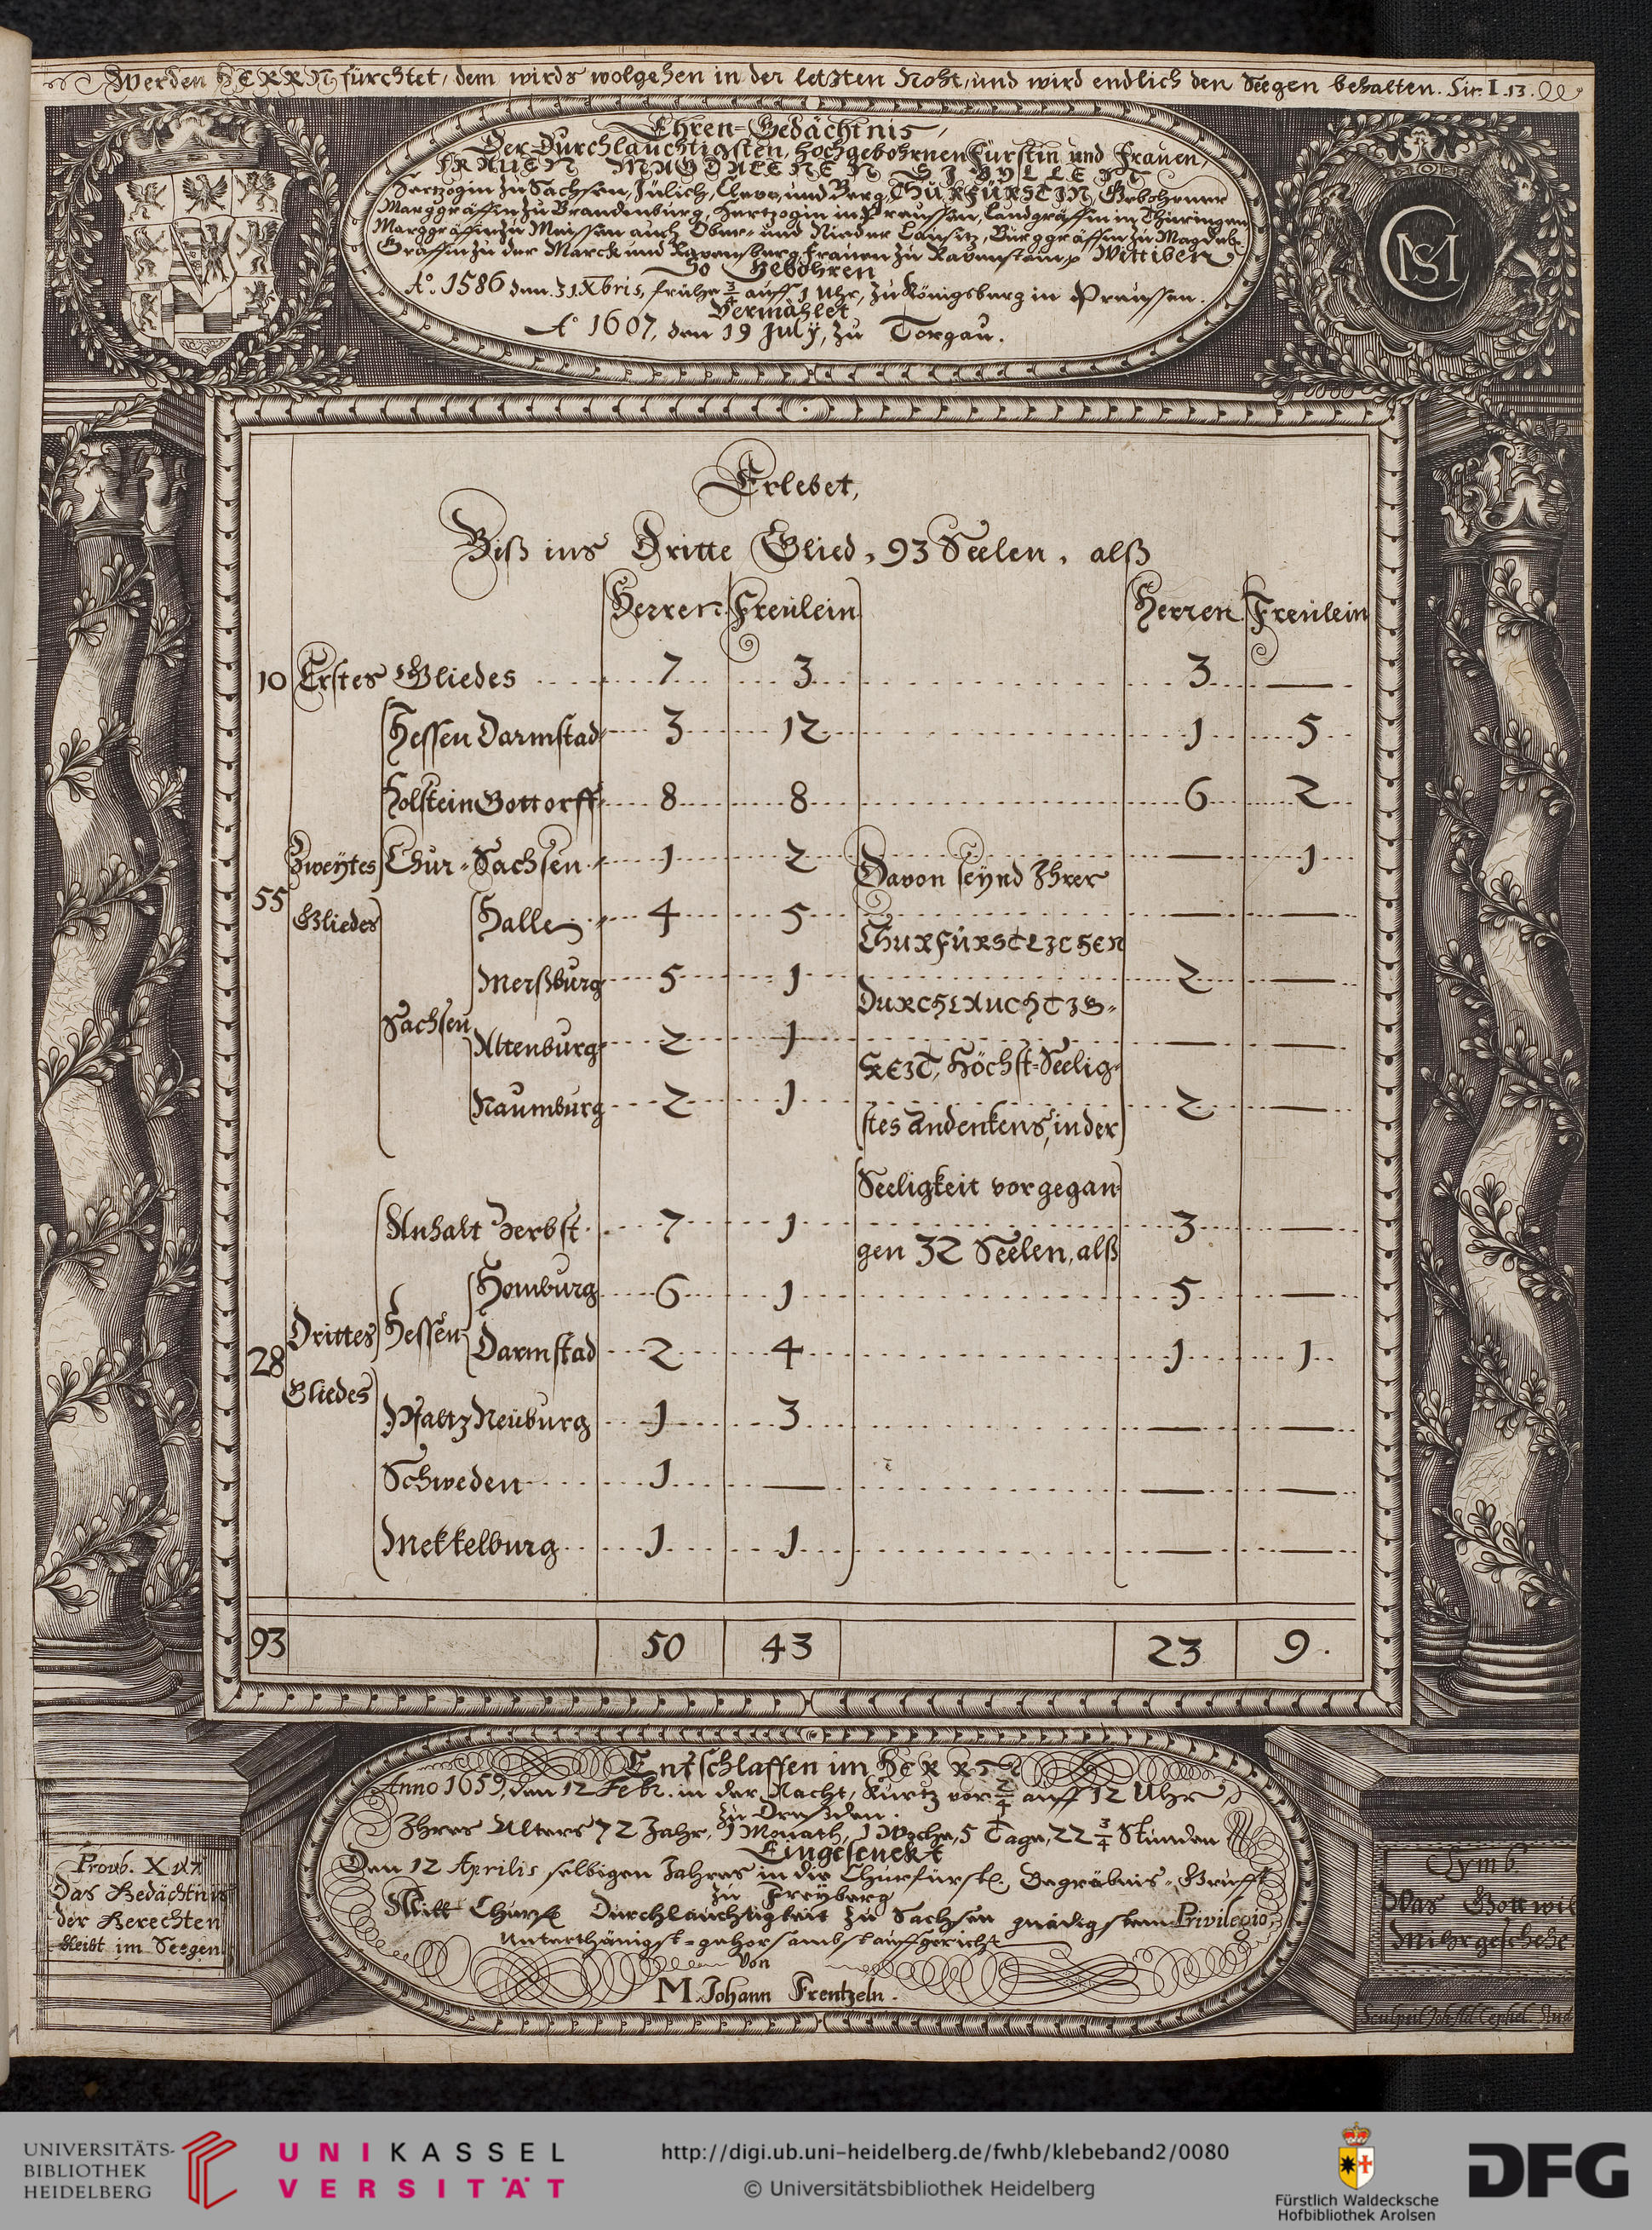 Wer den HERRN fürchtet, dem wirds wolgehen in der letzten Noht, und wird endlich den Seegen behalten. Sir. I. 13.
Ehren-Gedächtnis,
Der Durchlauchtigsten, Hochgebohrnen Fürstin und Frauen,
FRAUEN MAGDALENEN SIBYLLEN
Hertzogin zu Sachsen, Jülich, Cleve, und Berg, CHURFÜRSTIN, Gebohrner
Marggräffin zu Brandenburg, Hertzogin in Preussen, Landgräffin in Thüringen,
Marggräffin zu Meissen auch Ober- und Nieder Lausitz, Burggräffin zu Magdeb.
Gräffin zu der Marck und Ravensburg, Frauen zu Ravenstein, Wittiben
So Gebohren
Ao. 1586 den 31 Xbris, frühe 3/4 auff 1 Uhr, zu Königsberg in Preussen.
Vermählet
Ao 1607, den 19 July, zu Torgau.
Erlebet,
Biß ins Dritte Glied, 93 Seelen, alß
Herren Freülein Herren Freülein
10 Erstes Gliedes 7 3 3 —
Hessen Darmstad 3 12 1 5
Holstein Gottorff 8 8 6 2
Zweytes Chur-Sachsen 1 2 — 1
Davon seynd Ihrer
55 Gliedes Halle 4 5 — —
CHURFÜRSTLICHEN
Merßburg 5 1 2 —
DURCHLAUCHTIG-
Sachsen
Altenburg 2 1 — —
KEIT, Höchst-Seelig-
Naumburg 2 1 2 —
stes Andenkens, in der
Seeligkeit vorgegan-
Anhalt Zerbst 7 1 3 —
gen 32 Seelen, alß
Homburg 6 1 5 —
Drittes Hessen
28 Darmstad 2 4 1 1
Gliedes
Pfaltz Neüburg 1 3 — —
Schweden 1 — — —
Mekkelburg 1 1 — —
93 50 43 23 9.
Entschlaffen im HERRN
Anno 1659, den 12 Febr. in der Nacht, Kurtz vor 2/4 auff 12 Uhr
zu Dreßden.
Ihres Alters 72 Jahr, 1 Monath, 1 Woche, 5 Tage, 22 3/4 Stunden
Eingesenckt
Den 12 Aprilis selbigen Jahres in die Churfürstl. Begräbnis-Grufft
zu Freyberg
Mitt Churfl Durchlauchtigkeit zu Sachsen gnädigstem Privilegio,
Unterthänigst-gehorsambst auffgericht
Von
M. Johann Frentzeln.
Prov. X
Das Gedächtnis
der Gerechten
bleibt im Seegen
Symb.
Was Gott wil
Mihr geschehe
UNIVERSITÄTS-
BIBLIOTHEK
HEIDELBERG
UNIKASSEL
VERSITÄT
http://digi.ub.uni-heidelberg.de/fwhb/klebeband2/0080
© Universitätsbibliothek Heidelberg
Fürstlich Waldecksche
Hofbibliothek Arolsen
DFG